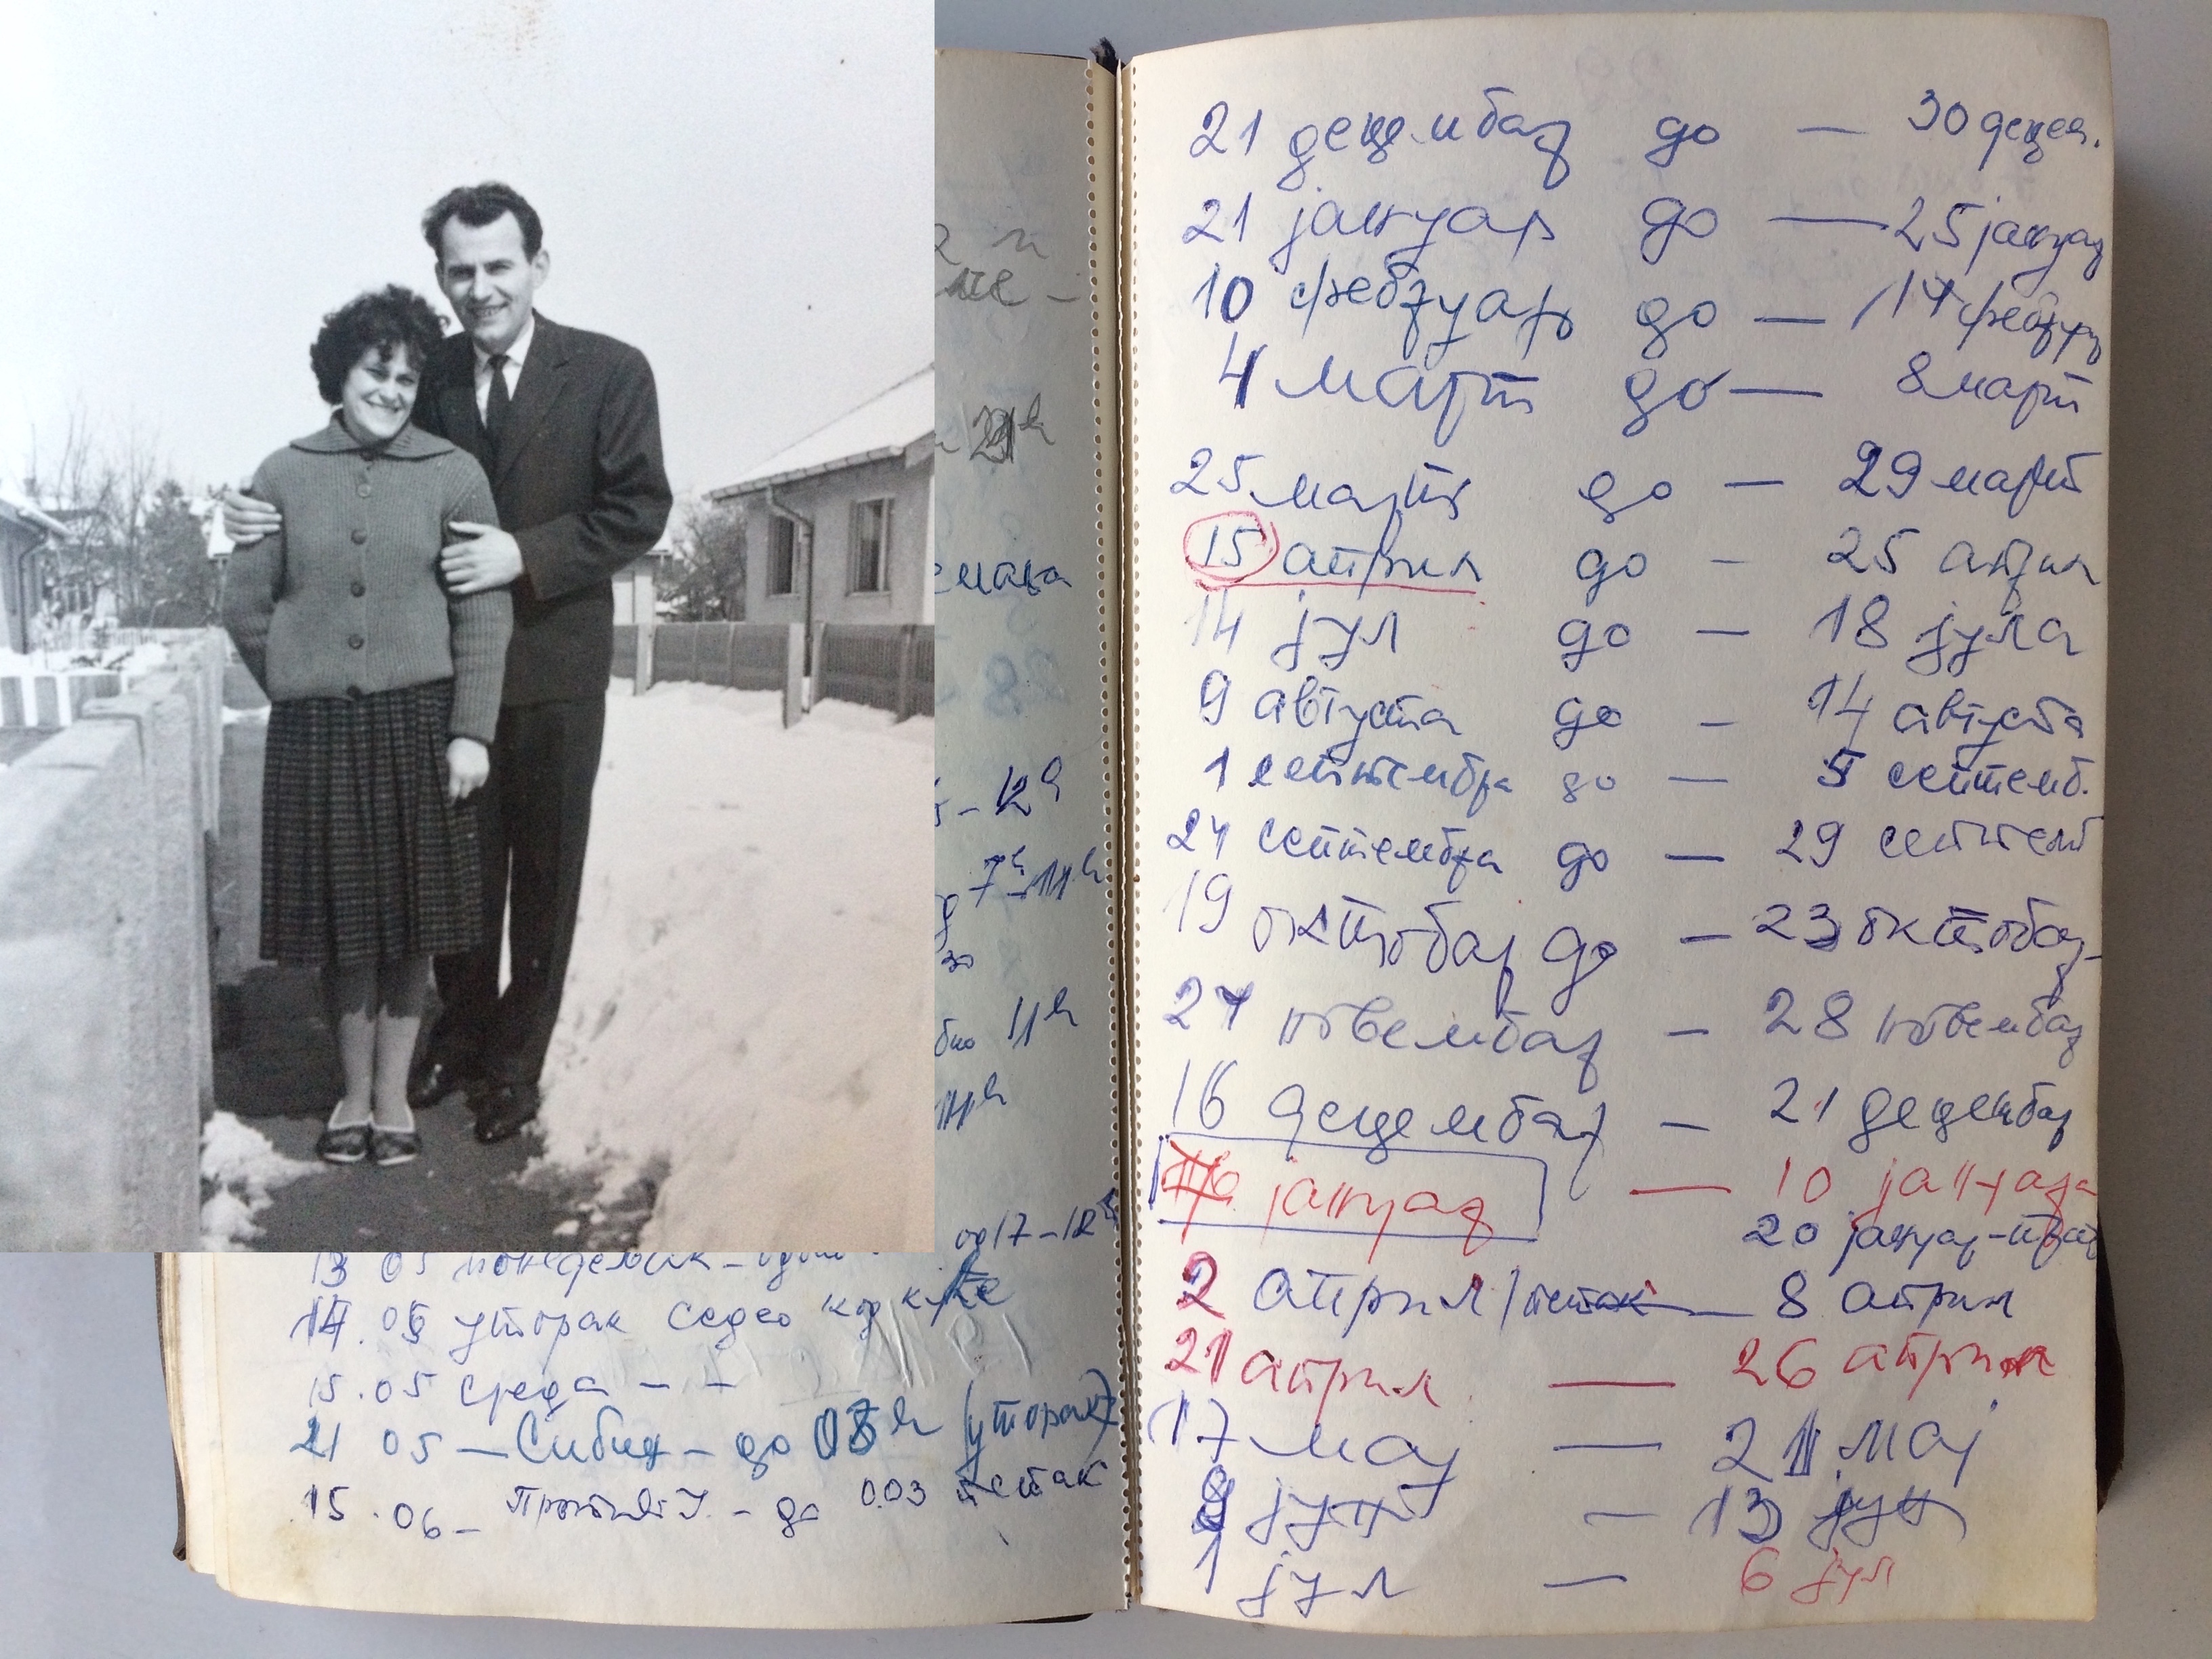 12 h
7 h - 11 h
30
11 h
11 h
од 17 - 18 h
13 05 понедељак -
14.05 уторак седео код куће
15.05 среда - -
21 05 - Сибињ - до 03 h (уторак)
15.06 - - до 0.03 петак
21 децембар до — 30 децем.
21 јануар до — 25 јануар
10 фебруар до — 14 фебруар
4 март до — 8 март
25 март до — 29 март
15 април до — 25 април
14 јул до — 18 јула
9 августа до — 14 августа
1 септембра до — 5 септемб.
24 септембра до — 29 септемб
19 октобар до — 23 октобар
24 новембар — 28 новембар
16 децембар — 21 децембар
јануар — 10 јануара
20 јануар -
2 април / петак — 8 април
21 април — 26 април
17 мај — 21 мај
9 јун — 13 јун
1 јул — 6 јул